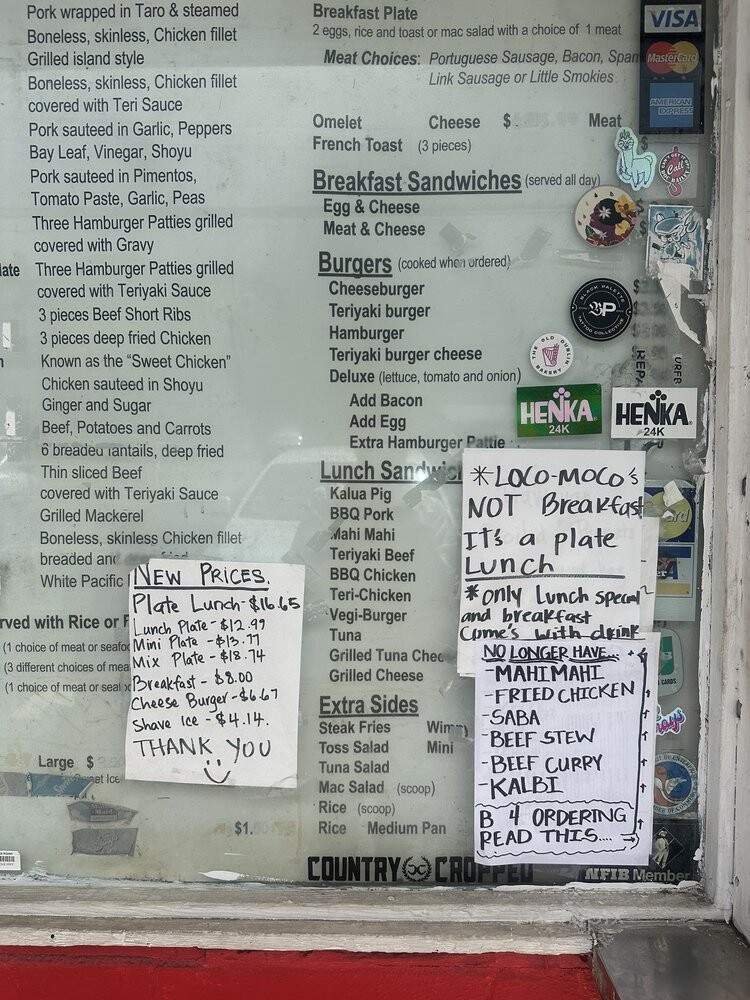 Pork wrapped in Taro & steamed
Boneless, skinless, Chicken fillet
Grilled island style
Boneless, skinless, Chicken fillet
covered with Teri Sauce
Pork sauteed in Garlic, Peppers
Bay Leaf, Vinegar, Shoyu
Pork sauteed in Pimentos,
Tomato Paste, Garlic, Peas
Three Hamburger Patties grilled
covered with Gravy
Three Hamburger Patties grilled
covered with Teriyaki Sauce
3 pieces Beef Short Ribs
3 pieces deep fried Chicken
Known as the “Sweet Chicken”
Chicken sauteed in Shoyu
Ginger and Sugar
Beef, Potatoes and Carrots
6 breaded fantails, deep fried
Thin sliced Beef
covered with Teriyaki Sauce
Grilled Mackerel
Boneless, skinless Chicken fillet
breaded and fried
White Pacific
rved with Rice or
(1 choice of meat or seafoo
(3 different choices of mea
(1 choice of meat or sea
Large $
$1.
NEW PRICES.
Plate Lunch - $16.65
Lunch Plate - $12.99
Mini Plate - $13.77
Mix Plate - $18.74
Breakfast - $8.00
Cheese Burger - $6.67
Shave Ice - $4.14.
THANK YOU
Breakfast Plate
2 eggs, rice and toast or mac salad with a choice of 1 meat
Meat Choices: Portuguese Sausage, Bacon, Spam
Link Sausage or Little Smokies
Omelet Cheese $ Meat
French Toast (3 pieces)
Breakfast Sandwiches (served all day)
Egg & Cheese
Meat & Cheese
Burgers (cooked when ordered)
Cheeseburger
Teriyaki burger
Hamburger
Teriyaki burger cheese
Deluxe (lettuce, tomato and onion)
Add Bacon
Add Egg
Extra Hamburger Pattie
Lunch Sandwic
Kalua Pig
BBQ Pork
Mahi Mahi
Teriyaki Beef
BBQ Chicken
Teri-Chicken
Vegi-Burger
Tuna
Grilled Tuna Chee
Grilled Cheese
Extra Sides
Steak Fries
Toss Salad Mini
Tuna Salad
Mac Salad (scoop)
Rice (scoop)
Rice Medium Pan
COUNTRY CROPPED
*LOCO-MOCO's
NOT Breakfast
It's a plate
Lunch
*only Lunch special
and breakfast
Come's with drink
NO LONGER HAVE...
-MAHIMAHI
-FRIED CHICKEN
-SABA
-BEEF STEW
-BEEF CURRY
-KALBI
B 4 ORDERING
READ THIS....
VISA
MasterCard
AMERICAN
EXPRESS
BLACK PALETTE
BP
TATTOO COLLECTIVE
THE OLD DUBLIN
BAKERY
HENKA
24K
HENKA
24K
NFIB Member